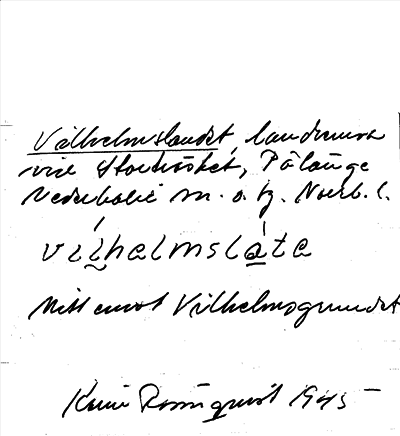 Vilhelmslandet, landremsa
vid Storträsket, Pålänge
Nederkalix sn. o. tg. Norrb. l.
vilhelmslate
Mitt emot Vilhelmsgrundet
Rönnqvist 1945